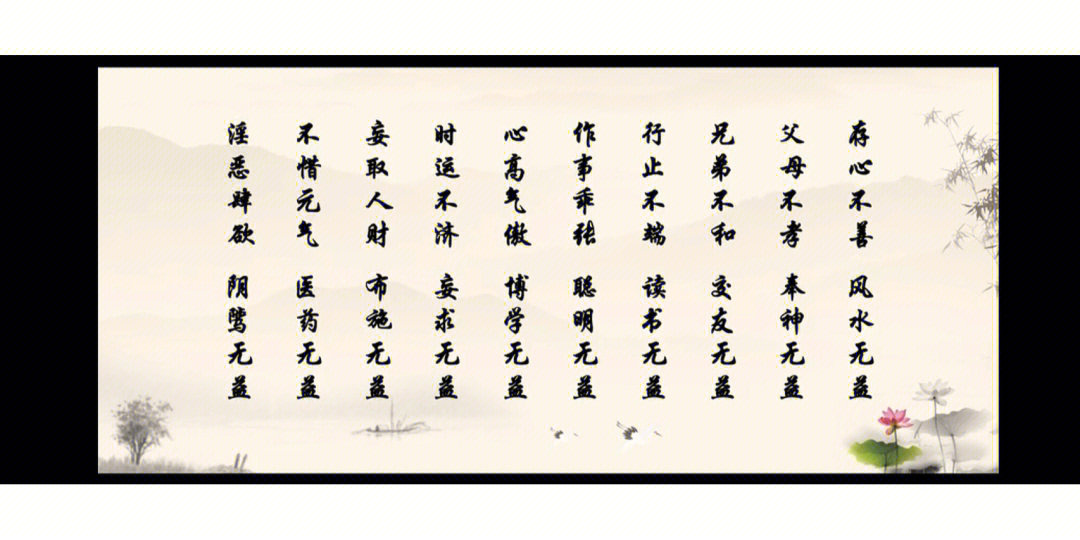 存心不善 风水无益
父母不孝 奉神无益
兄弟不和 交友无益
行止不端 读书无益
作事乖张 聪明无益
心高气傲 博学无益
时运不济 妄求无益
妄取人财 布施无益
不惜元气 医药无益
淫恶肆欲 阴骘无益